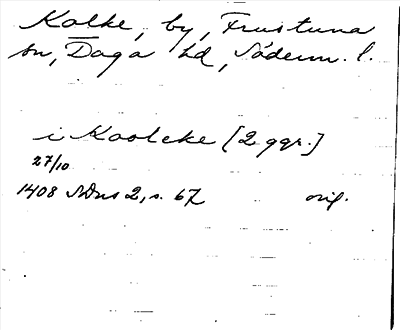 Kolke, by, Frustuna
sn, Daga hd, Söderm. l.
i Koolcke [2 ggr.]
27/10
1408 SDns 2, s. 67 orig.